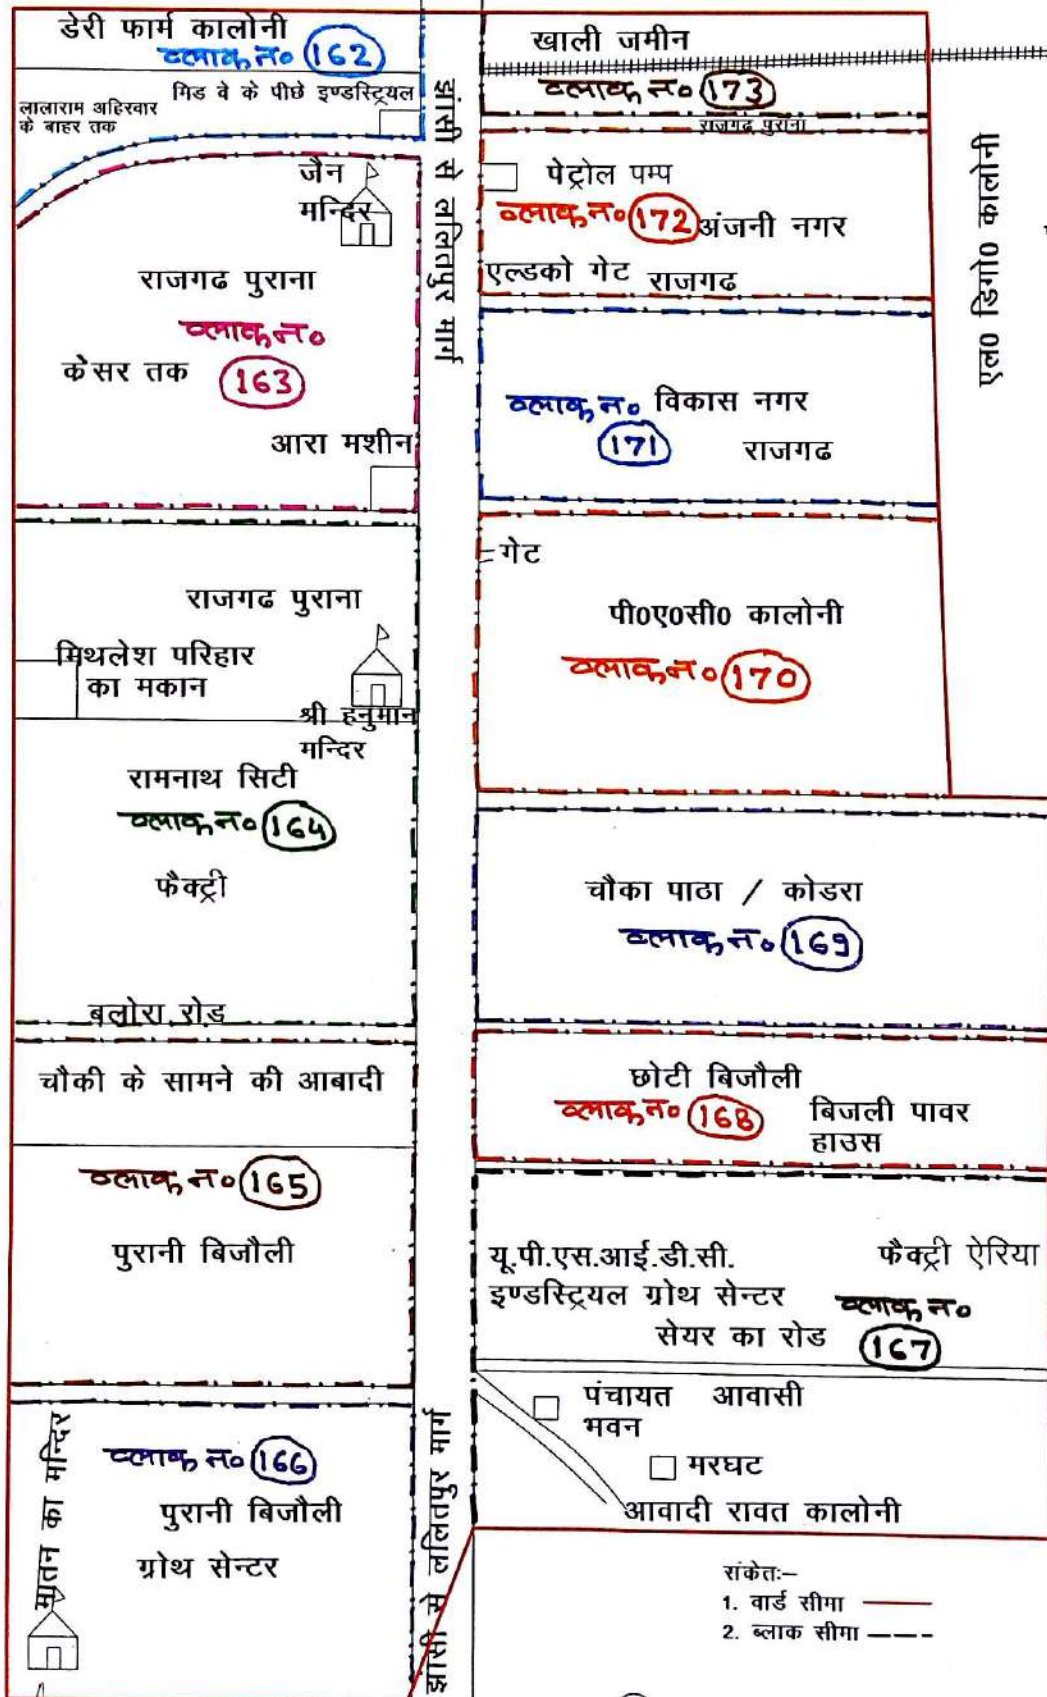 डेरी फार्म कालोनी
ब्लाक न० 162
गिड वे के पीछे इण्डस्ट्रियल
लालाराम अहिरवार
के बाहर तक
जैन
मन्दिर
राजगढ पुराना
ब्लाक न०
केसर तक 163
आरा मशीन
राजगढ पुराना
मिथलेश परिहार
का मकान
श्री हनुमान
मन्दिर
रामनाथ सिटी
ब्लाक न० 164
फैक्ट्री
बलोरा रोड
चौकी के सामने की आबादी
ब्लाक न० 165
पुरानी बिजौली
मातन का मन्दिर
ब्लाक न० 166
पुरानी बिजौली
ग्रोथ सेन्टर
झांसी से ललितपुर मार्ग
झांसी से ललितपुर मार्ग
खाली जमीन
ब्लाक न० 173
राजगढ पुराना
पेट्रोल पम्प
ब्लाक न० 172 अंजनी नगर
एल्डको गेट राजगढ
ब्लाक न० विकास नगर
171 राजगढ
गेट
पी0ए0सी0 कालोनी
ब्लाक न० 170
चौका पाठा / कोडरा
ब्लाक न० 169
छोटी बिजौली
ब्लाक न० 168 बिजली पावर
हाउस
यू.पी.एस.आई.डी.सी. फैक्ट्री ऐरिया
इण्डस्ट्रियल ग्रोथ सेन्टर ब्लाक न०
सेयर का रोड 167
पंचायत आवासी
भवन
मरघट
आवादी रावत कालोनी
एल0 डिगो0 कालोनी
संकेतः–
1. वार्ड सीमा
2. ब्लाक सीमा